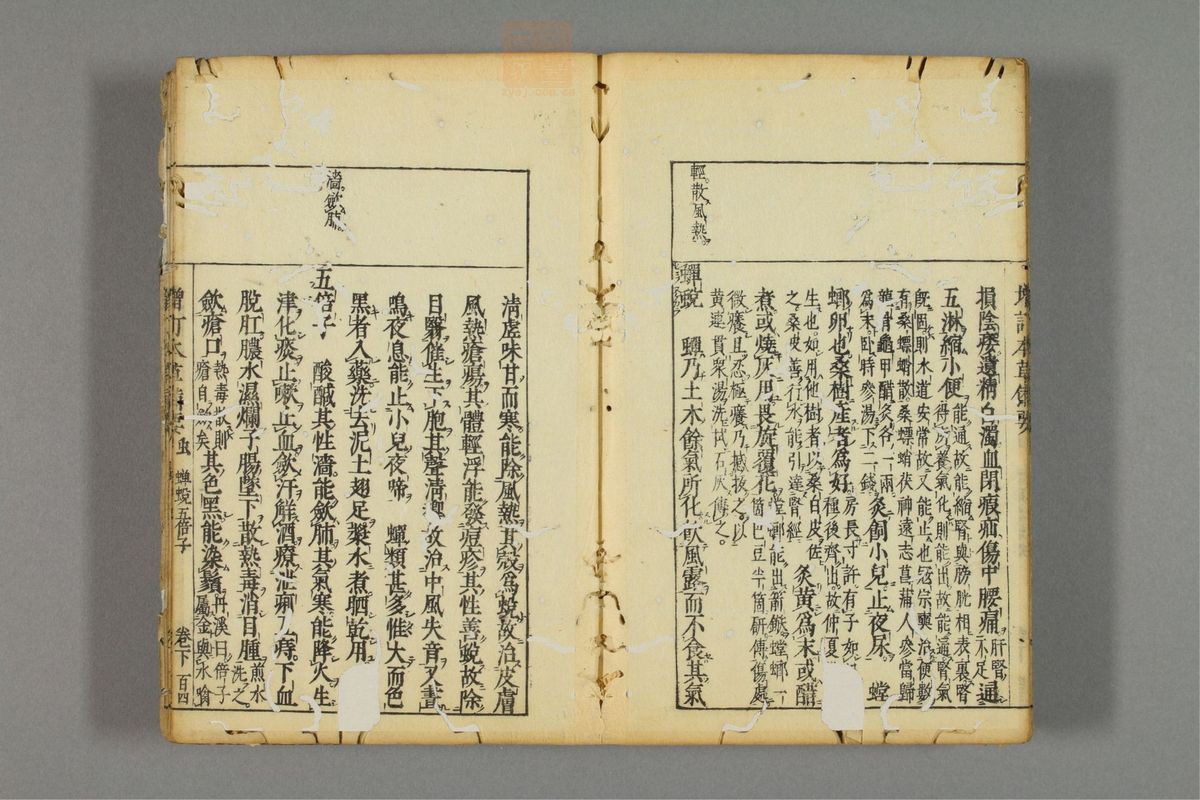 輕散風熱
損陰痿遺精白濁血閉瘕疝傷中腰痛肝腎不足通
五淋縮小便能通故能縮腎與膀胱相表裏腎得所養氣化則能出故能通腎氣
既固則水道安常故又能止也寇宗奭治便數有桑螵蛸散桑螵蛸茯神遠志菖蒲人參當歸
龍骨龜甲醋炙各一兩為末臥時參湯下二錢炙飼小兒止夜尿螳
螂卵也桑樹產者為好房長寸許有子如蛆種後齊出故仲夏
生也如用他樹者以桑白皮佐之桑皮善行水能引達腎經炙黃為末或醋
煮或燒灰用畏旋覆花螳螂能出箭鏃螳螂一箇巴豆半箇研傅傷處
微癢且忍極癢乃撼拔之以黃連貫眾湯洗拭石灰傅之
蟬蛻 蟬乃土木餘氣所化飲風露而不食其氣
增訂本草備要
濇歛肺
清虛味甘而寒能除風熱其殼為蛻故治皮膚
風熱瘡瘍其體輕浮能發痘疹其性善蛻故除
目翳催生下胞其聲清響故治中風失音又晝
鳴夜息能止小兒夜啼 蟬類甚多惟大而色
黑者入藥洗去泥土翅足漿水煮晒乾用
五倍子 酸鹹其性濇能歛肺其氣寒能降火生
津化痰止嗽止血歛汗解酒療泄痢五痔下血
脫肛膿水濕爛子腸墜下散熱毒消目腫煎水洗之
歛瘡口熱毒散則瘡自歛矣其色黑能染鬚丹溪曰倍子屬金與水噙
增訂本草備要 虫 蟬蛻五倍子 卷下 百四